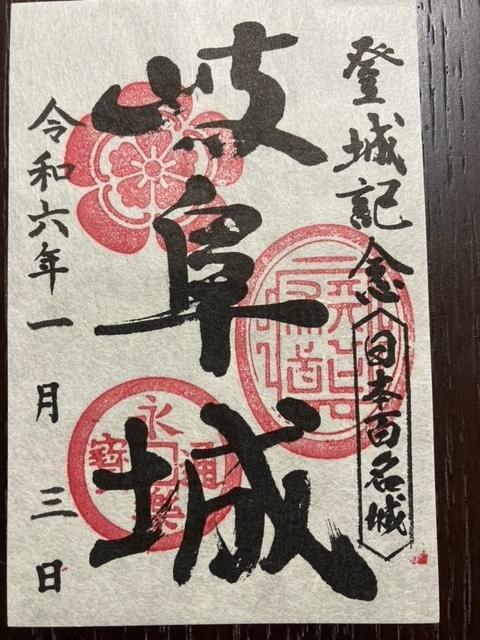 登城記念
日本百名城
岐阜城
令和六年一月三日
永樂通寳